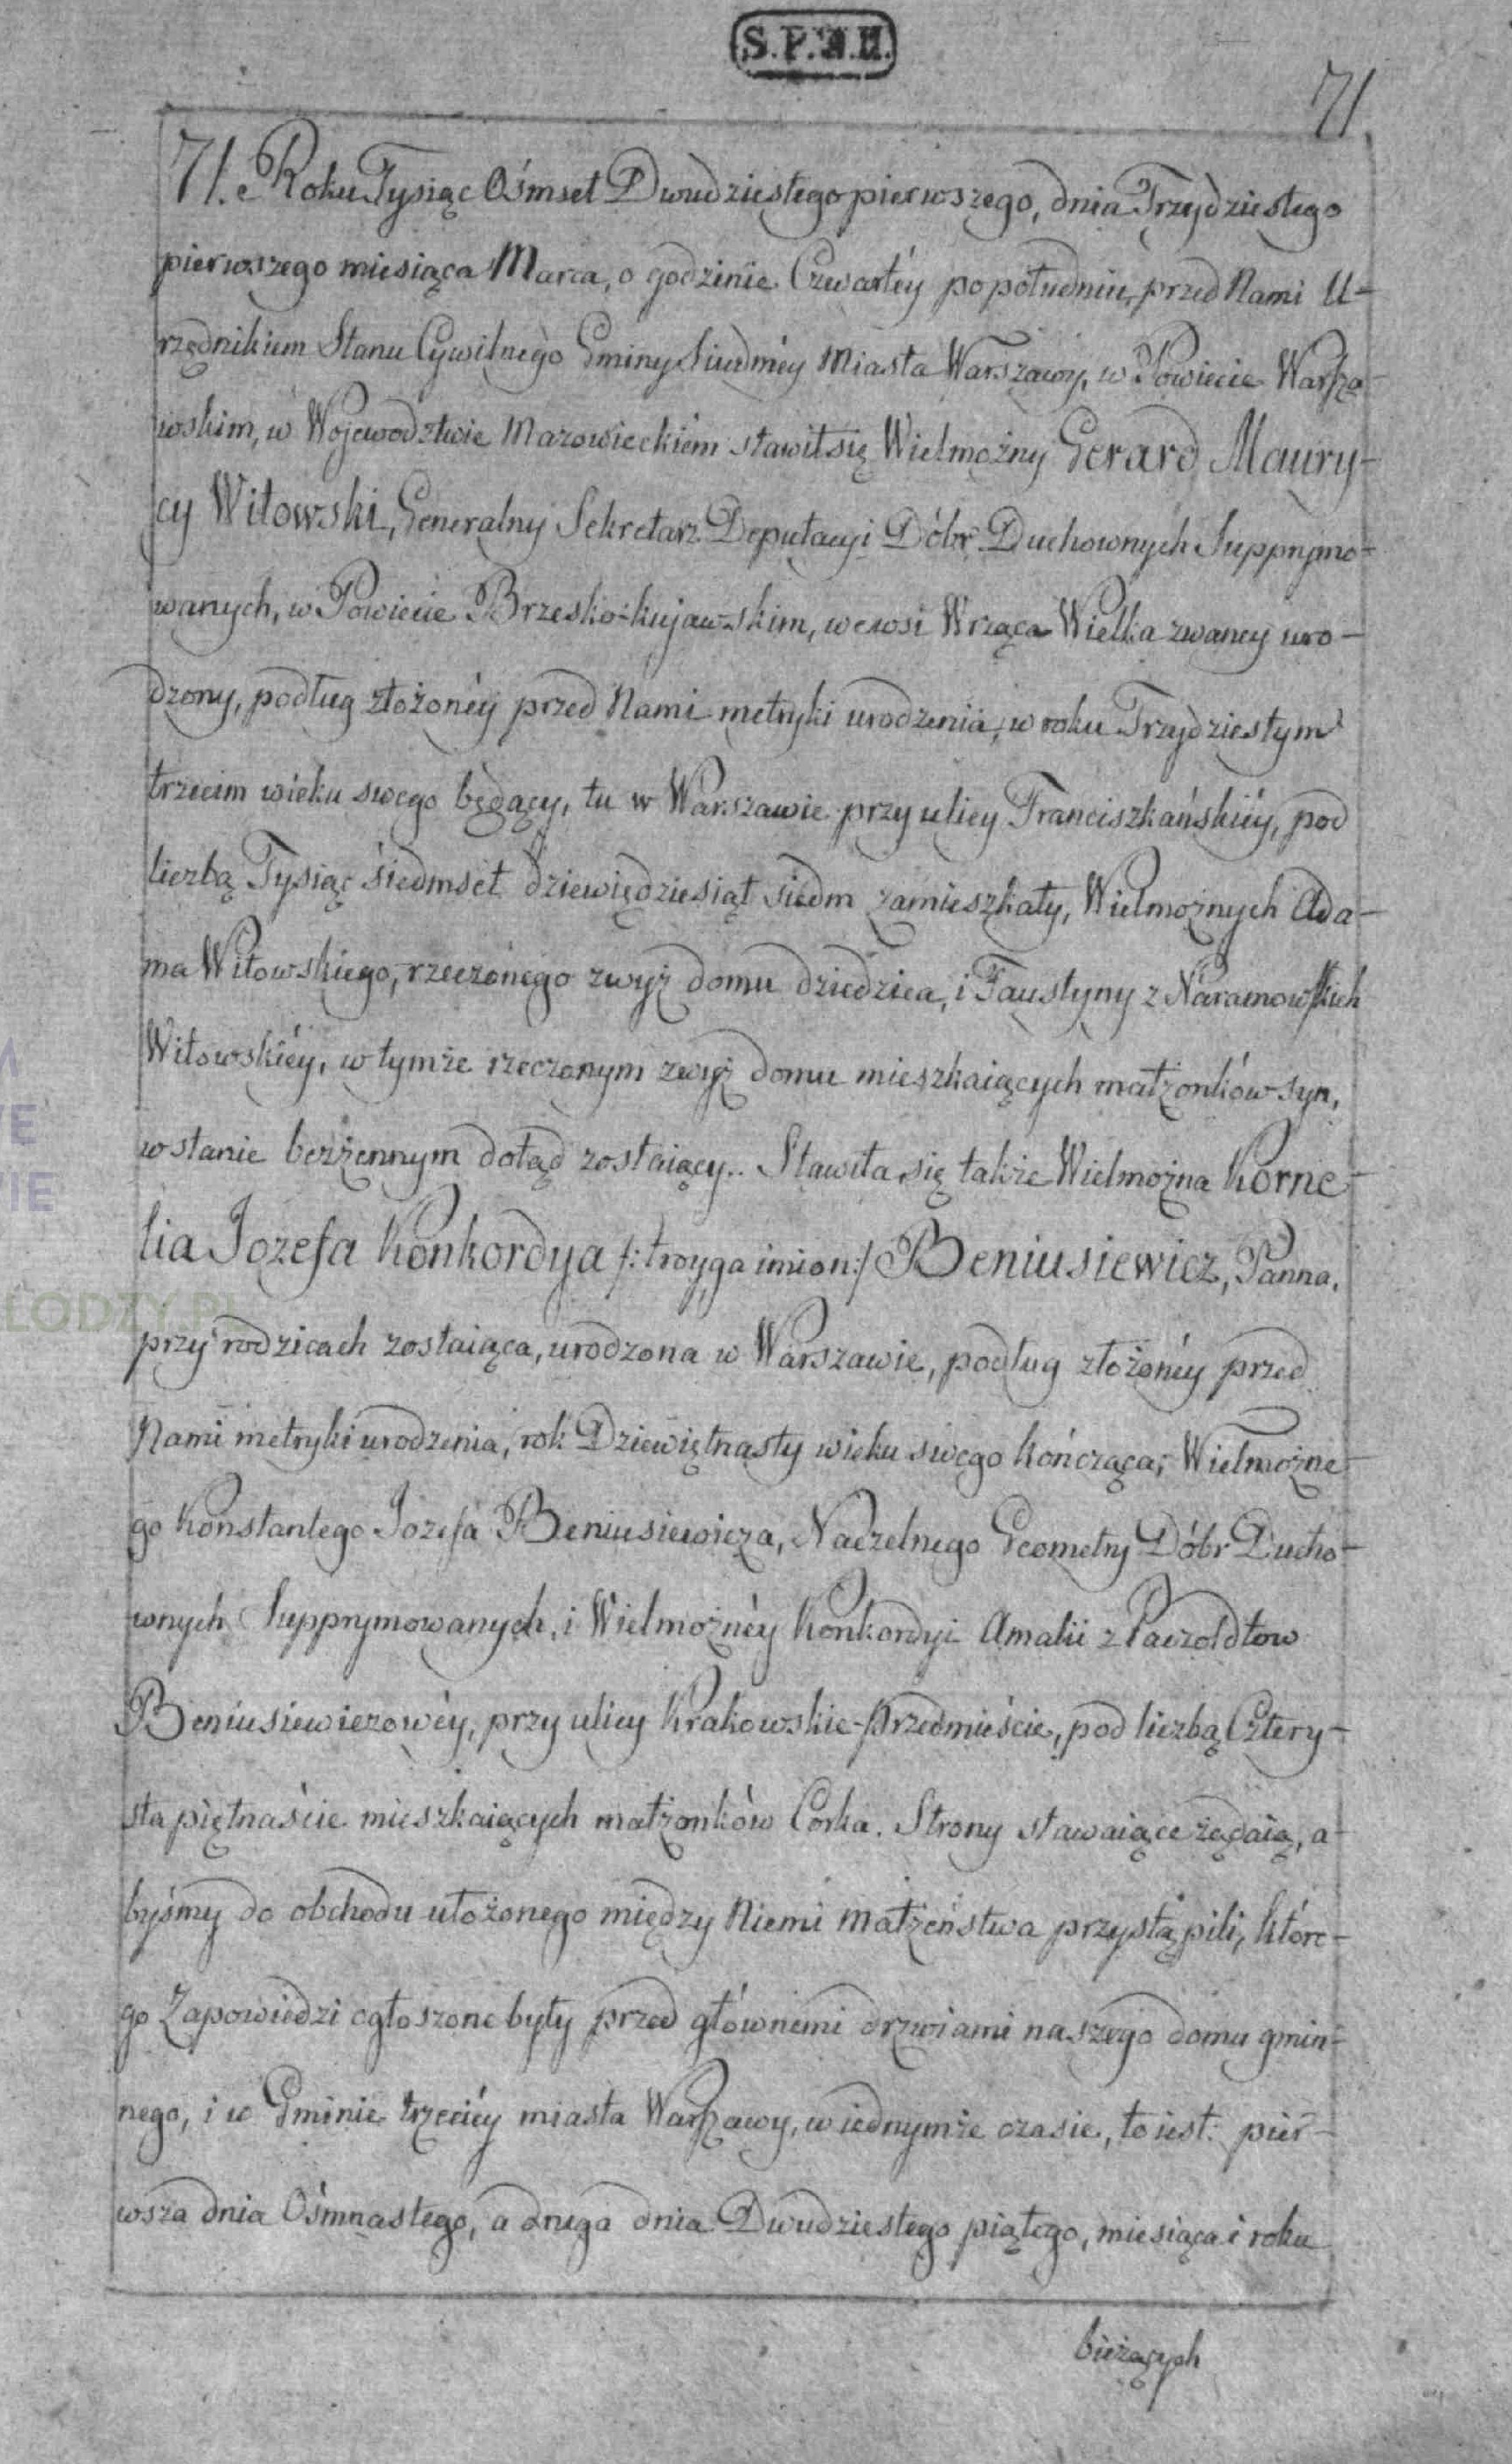 S.P.W.II.
71.
71. Roku Tysiąc Ośmset Dwudziestego pierwszego, dnia Trzydziestego
pierwszego miesiąca Marca, o godzinie Czwartéy popołudniu, przed Nami U-
rzędnikiem Stanu Cywilnego Gminy Siudméy Miasta Warszawy, w Powiecie Warsza-
wskim, w Wojewodztwie Mazowieckiém stawił się Wielmożny Gerard Maury-
cy Witowski, Generalny Sekretarz Deputacyi Dóbr Duchownych Supprymo-
wanych, w Powiecie Brzesko-kujawskim, we wsi Wrząca Wielka zwaney uro-
dzony, podług złożonéy przed Nami metryki urodzenia, w roku Trzydziestym
trzecim wieku swego będący, tu w Warszawie przy ulicy Franciszkańskiéy, pod
liczbą Tysiąc śiedmset dziewiędziesiąt siedm zamieszkały, Wielmożnych Ada-
ma Witowskiego, rzeczonego zwyż domu dziedzica, i Faustyny z Naramowskich
Witowskiéy, w tymże rzeczonym zwyż domu mieszkaiących małżonków syn,
w stanie bezżennym dotąd zostaiący.. Stawiła się także Wielmożna Korne-
lia Jozefa Konkordya /: troyga imion:/ Beniusiewicz, Panna,
przy rodzicach zostaiąca, urodzona w Warszawie, podług złożonéy przed
Nami metryki urodzenia, rok Dziewiętnasty wieku swego kończąca, Wielmożne-
go Konstantego Jozefa Beniusiewicza, Naczelnego Geometry Dóbr Ducho-
wnych Supprymowanych, i Wielmożnéy Konkordyi Amalii z Paezoldtow
Beniusiewiczowéy, przy ulicy Krakowskie-Przedmieście, pod liczbą Cztery-
sta piętnaście mieszkaiących małżonków Corka. Strony stawaiące żądaią, a-
byśmy do obchodu ułożonego między Niemi Małżeństwa przystąpili, które-
go Zapowiedzi ogłoszone były przed głównemi drzwiami naszego domu gmin-
nego, i w Gminie trzeciéy miasta Warszawy, w iednymże czasie, to iest: pier-
wsza dnia Ośmnastego, a druga dnia Dwudziestego piątego, miesiąca i roku
bieżących